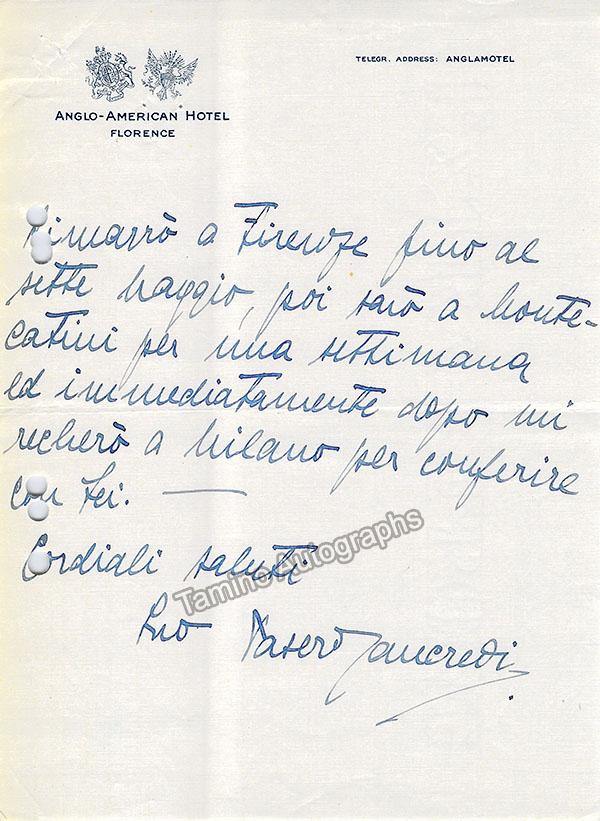 TELEGR. ADDRESS: ANGLAMOTEL
ANGLO-AMERICAN HOTEL
FLORENCE
Rimarrò a Firenze fino al
sette Maggio, poi sarò a Monte-
catini per una settimana
ed immediatamente dopo mi
recherò a Milano per conferire
con Lei. —
Cordiali saluti
Suo Pasero Tancredi
Tamino Autographs